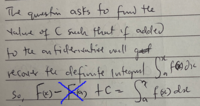 The question asks to find the
value of C such that if added
to the antiderivative will get
recover the definite integral ∫ₐˣ f(x) dx
So, F(x) – F(a) + C = ∫ₐˣ f(x) dx